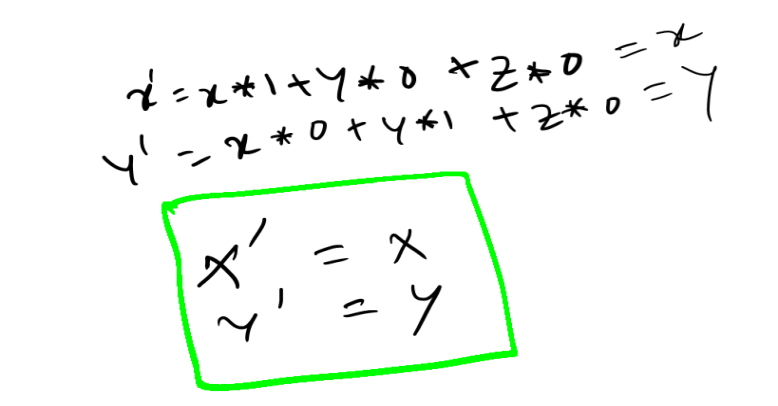 x' = x*1+Y*0 + Z*0 = x
Y' = x*0+Y*1 + Z*0 = Y
x' = x
Y' = Y